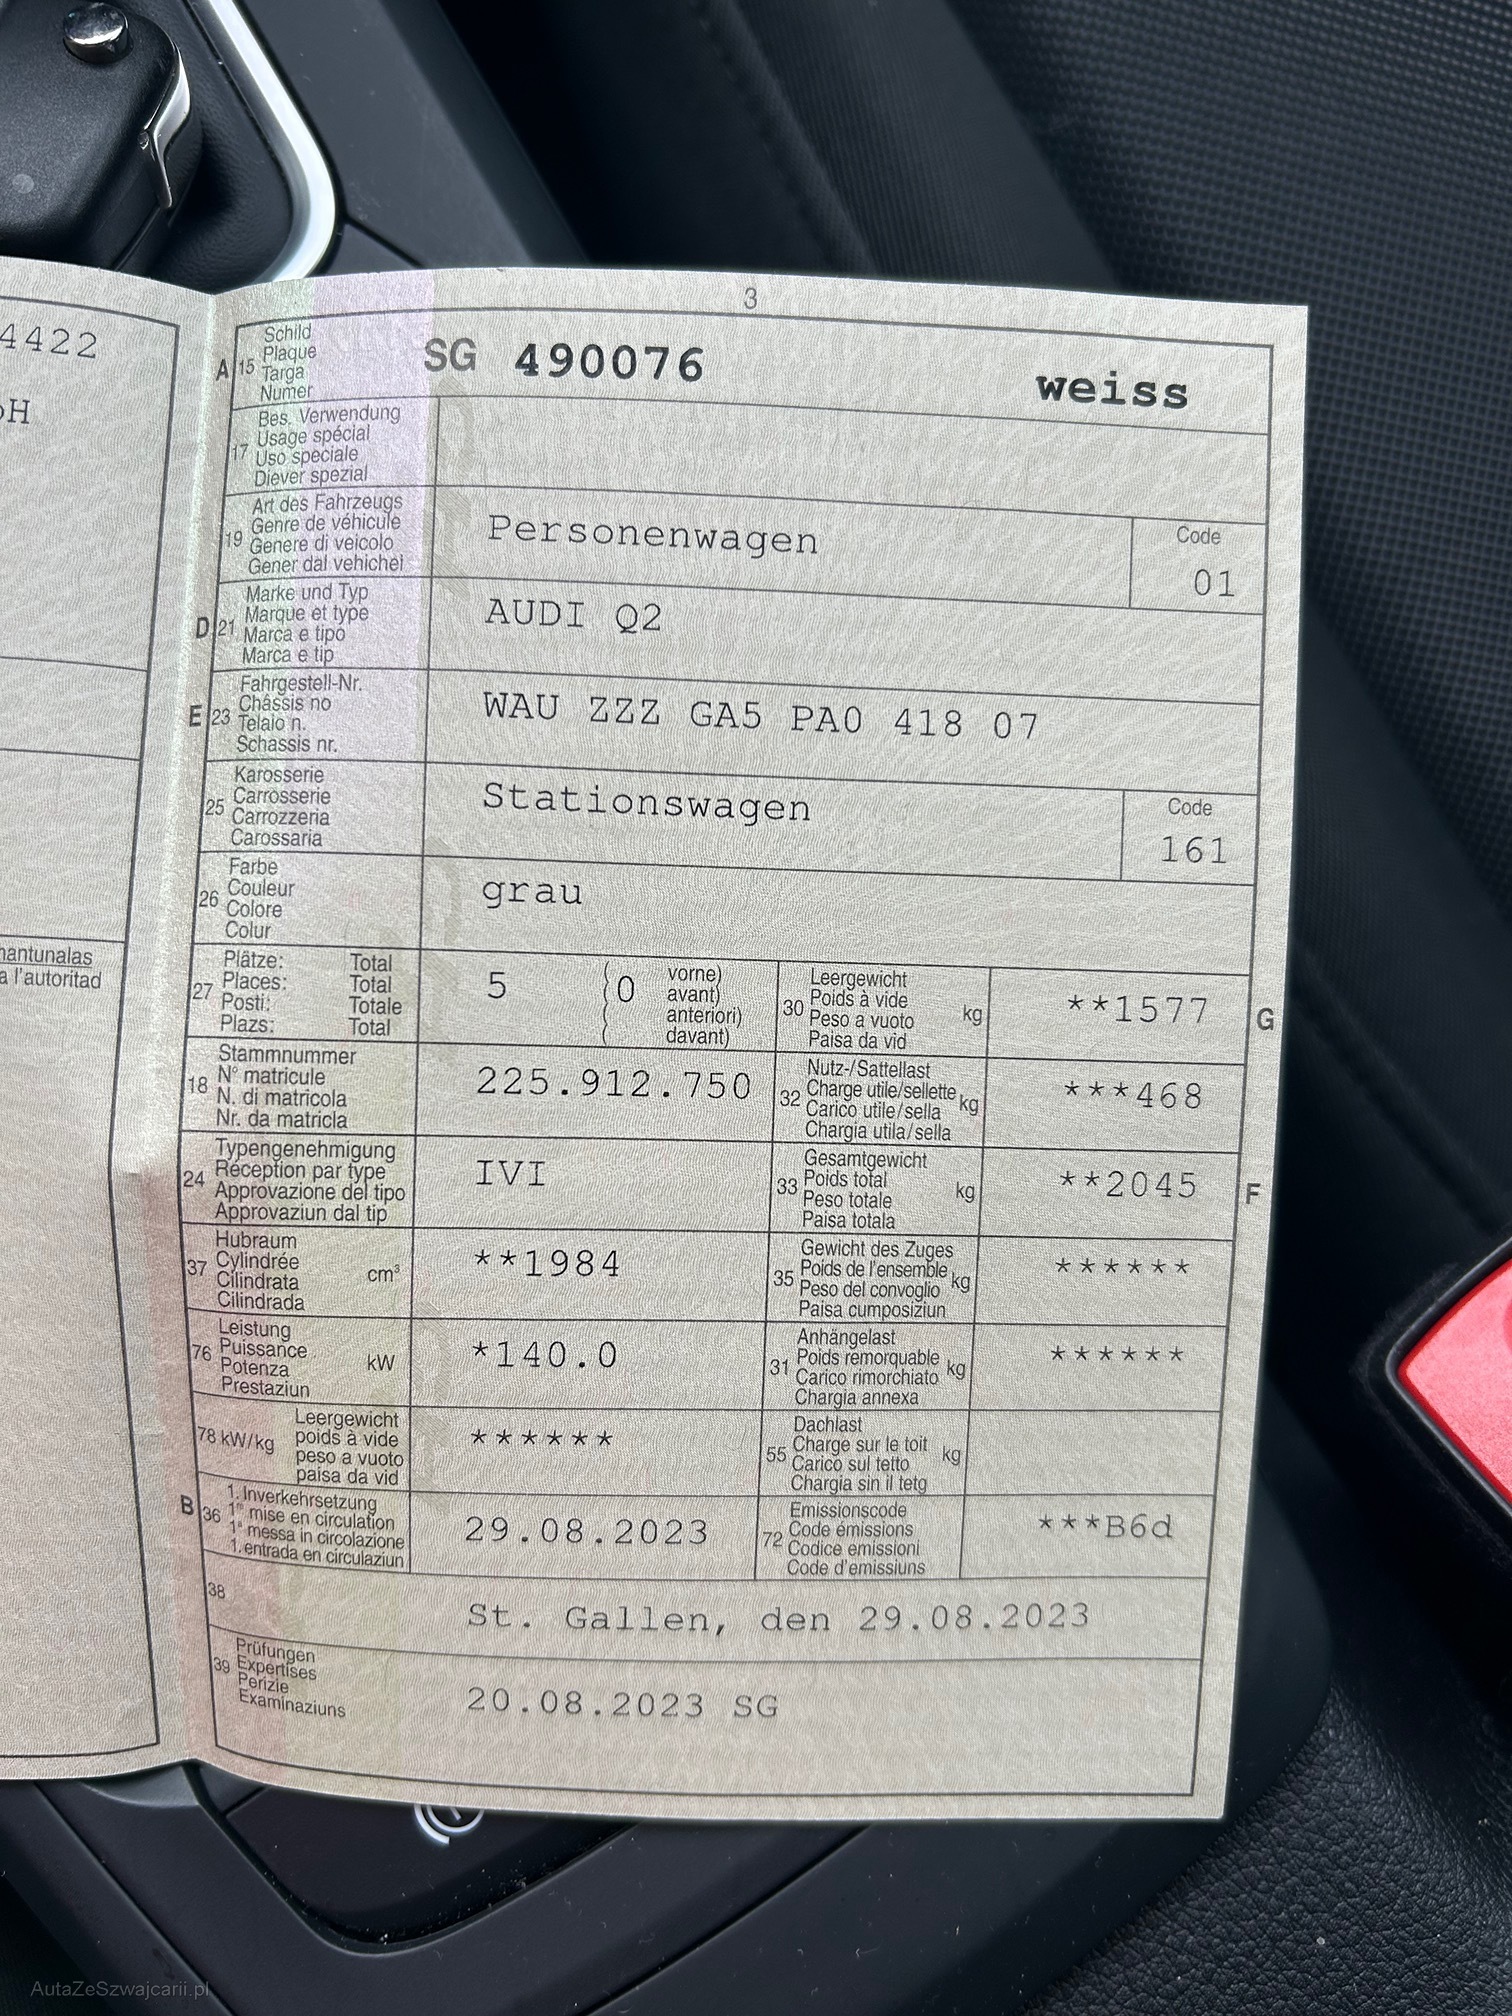 4422
H
nantunalas
a l'autoritad
3
A 15 Schild
Plaque
Targa
Numer
SG 490076 weiss
17 Bes. Verwendung
Usage spécial
Uso speciale
Diever spezial
19 Art des Fahrzeugs
Genre de véhicule
Genere di veicolo
Gener dal vehichel
Personenwagen
Code
01
D 21 Marke und Typ
Marque et type
Marca e tipo
Marca e tip
AUDI Q2
E 23 Fahrgestell-Nr.
Châssis no
Telaio n.
Schassis nr.
WAU ZZZ GA5 PA0 418 07
25 Karosserie
Carrosserie
Carrozzeria
Carossaria
Stationswagen
Code
161
26 Farbe
Couleur
Colore
Colur
grau
27 Plätze: Total
Places: Total
Posti: Totale
Plazs: Total
5 (0 vorne)
avant)
anteriori)
davant)
30 Leergewicht
Poids à vide
Peso a vuoto
Paisa da vid
kg
**1577
G
18 Stammnummer
N° matricule
N. di matricola
Nr. da matricla
225.912.750
32 Nutz-/Sattellast
Charge utile/sellette
Carico utile/sella
Chargia utila/sella
kg
***468
24 Typengenehmigung
Réception par type
Approvazione del tipo
Approvaziun dal tip
IVI
33 Gesamtgewicht
Poids total
Peso totale
Paisa totala
kg
**2045
F
37 Hubraum
Cylindrée
Cilindrata
Cilindrada
cm³
**1984
35 Gewicht des Zuges
Poids de l'ensemble
Peso del convoglio
Paisa cumposiziun
kg
******
76 Leistung
Puissance
Potenza
Prestaziun
kW
*140.0
31 Anhängelast
Poids remorquable
Carico rimorchiato
Chargia annexa
kg
******
78 kW/kg Leergewicht
poids à vide
peso a vuoto
paisa da vid
******
55 Dachlast
Charge sur le toit
Carico sul tetto
Chargia sin il tetg
kg
B 36 1. Inverkehrsetzung
1re mise en circulation
1a messa in circolazione
1. entrada en circulaziun
29.08.2023
72 Emissionscode
Code émissions
Codice emissioni
Code d'emissiuns
***B6d
38
St. Gallen, den 29.08.2023
39 Prüfungen
Expertises
Perizie
Examinaziuns
20.08.2023 SG
AutaZeSzwajcarii.pl